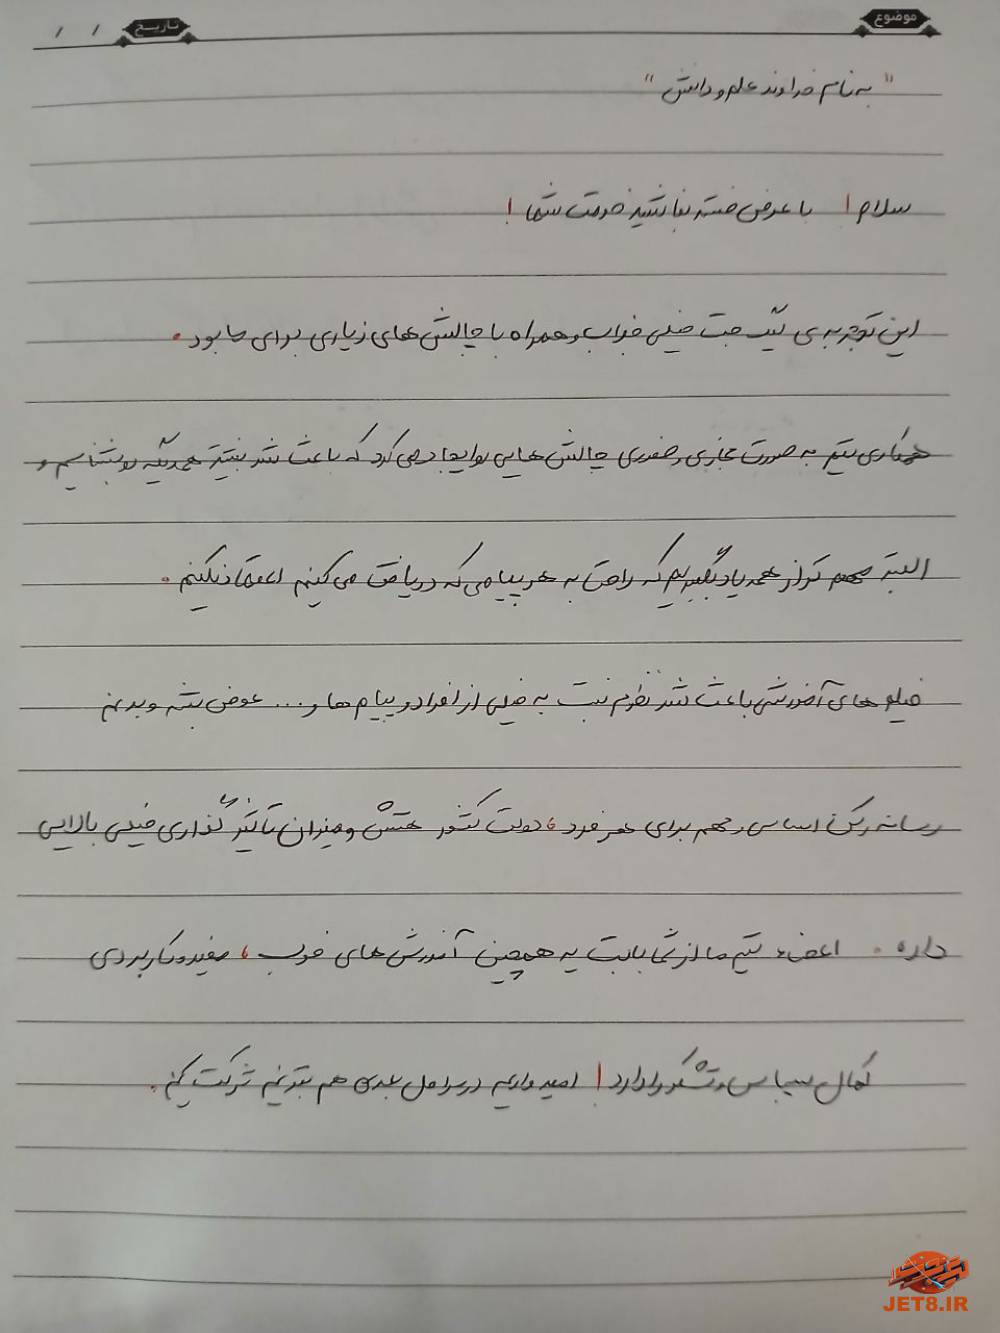 موضوع
تاریخ / /
" به نام خداوند علم و دانش "
سلام! با عرض خسته نباشید خدمت شما!
این تجربه ی خیلی خوب و همراه با چالش های زیادی برای ما بود.
همکاری تیم به صورت مجازی و حضوری چالش هایی رو ایجاد می کرد که باعث شد بیشتر همدیگه رو بشناسیم و
البته مهم تر از همه یاد بگیریم که راحت به هر پیامی که دریافت می کنیم اعتماد نکنیم.
فیلم های آموزشی باعث شد نظرم نسبت به خیلی از افراد و پیام ها و... عوض بشه و بدونم
رسانه رکن اساسی و مهم برای هر فرد، دولت کشور هستش و میزان تأثیر گذاری خیلی بالایی
داره. اعضاء تیم ما از شما بابت یه همچین آموزش های خوب، مفید و کاربردی
کمال سپاس و تشکر را دارد! امیدواریم در مراحل بعدی هم بتونیم شرکت کنیم.
JET8.IR